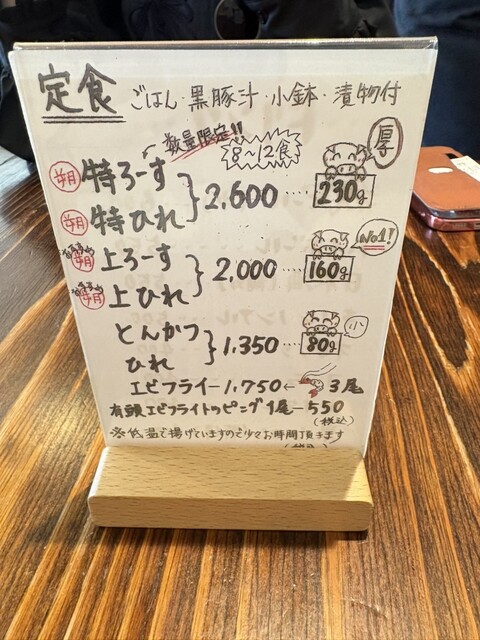 定食 ごはん・黒豚汁・小鉢・漬物付
数量限定!!
8～12食
厚
特ろーす
特ひれ
2,600 ···· 230g
No1!
上ろーす
上ひれ
2,000 ···· 160g
小
とんかつ
ひれ
1,350 ···· 80g
エビフライ－1,750← 3尾
有頭エビフライトッピング1尾－550
(税込)
※低温で揚げていますので少々お時間頂きます
(税込)